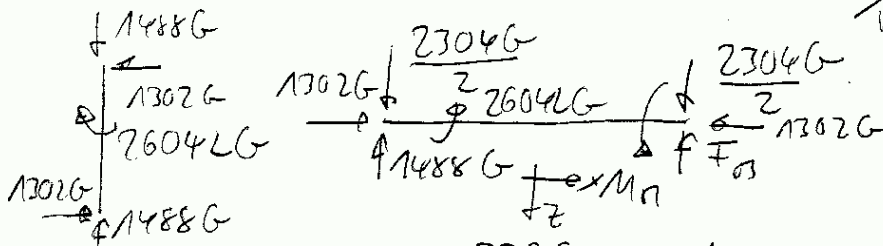 1488G
1302G
2604LG
1302G
1488G
1302G
2304G
2
2604LG
1488G
x
z
2304G
2
1302G